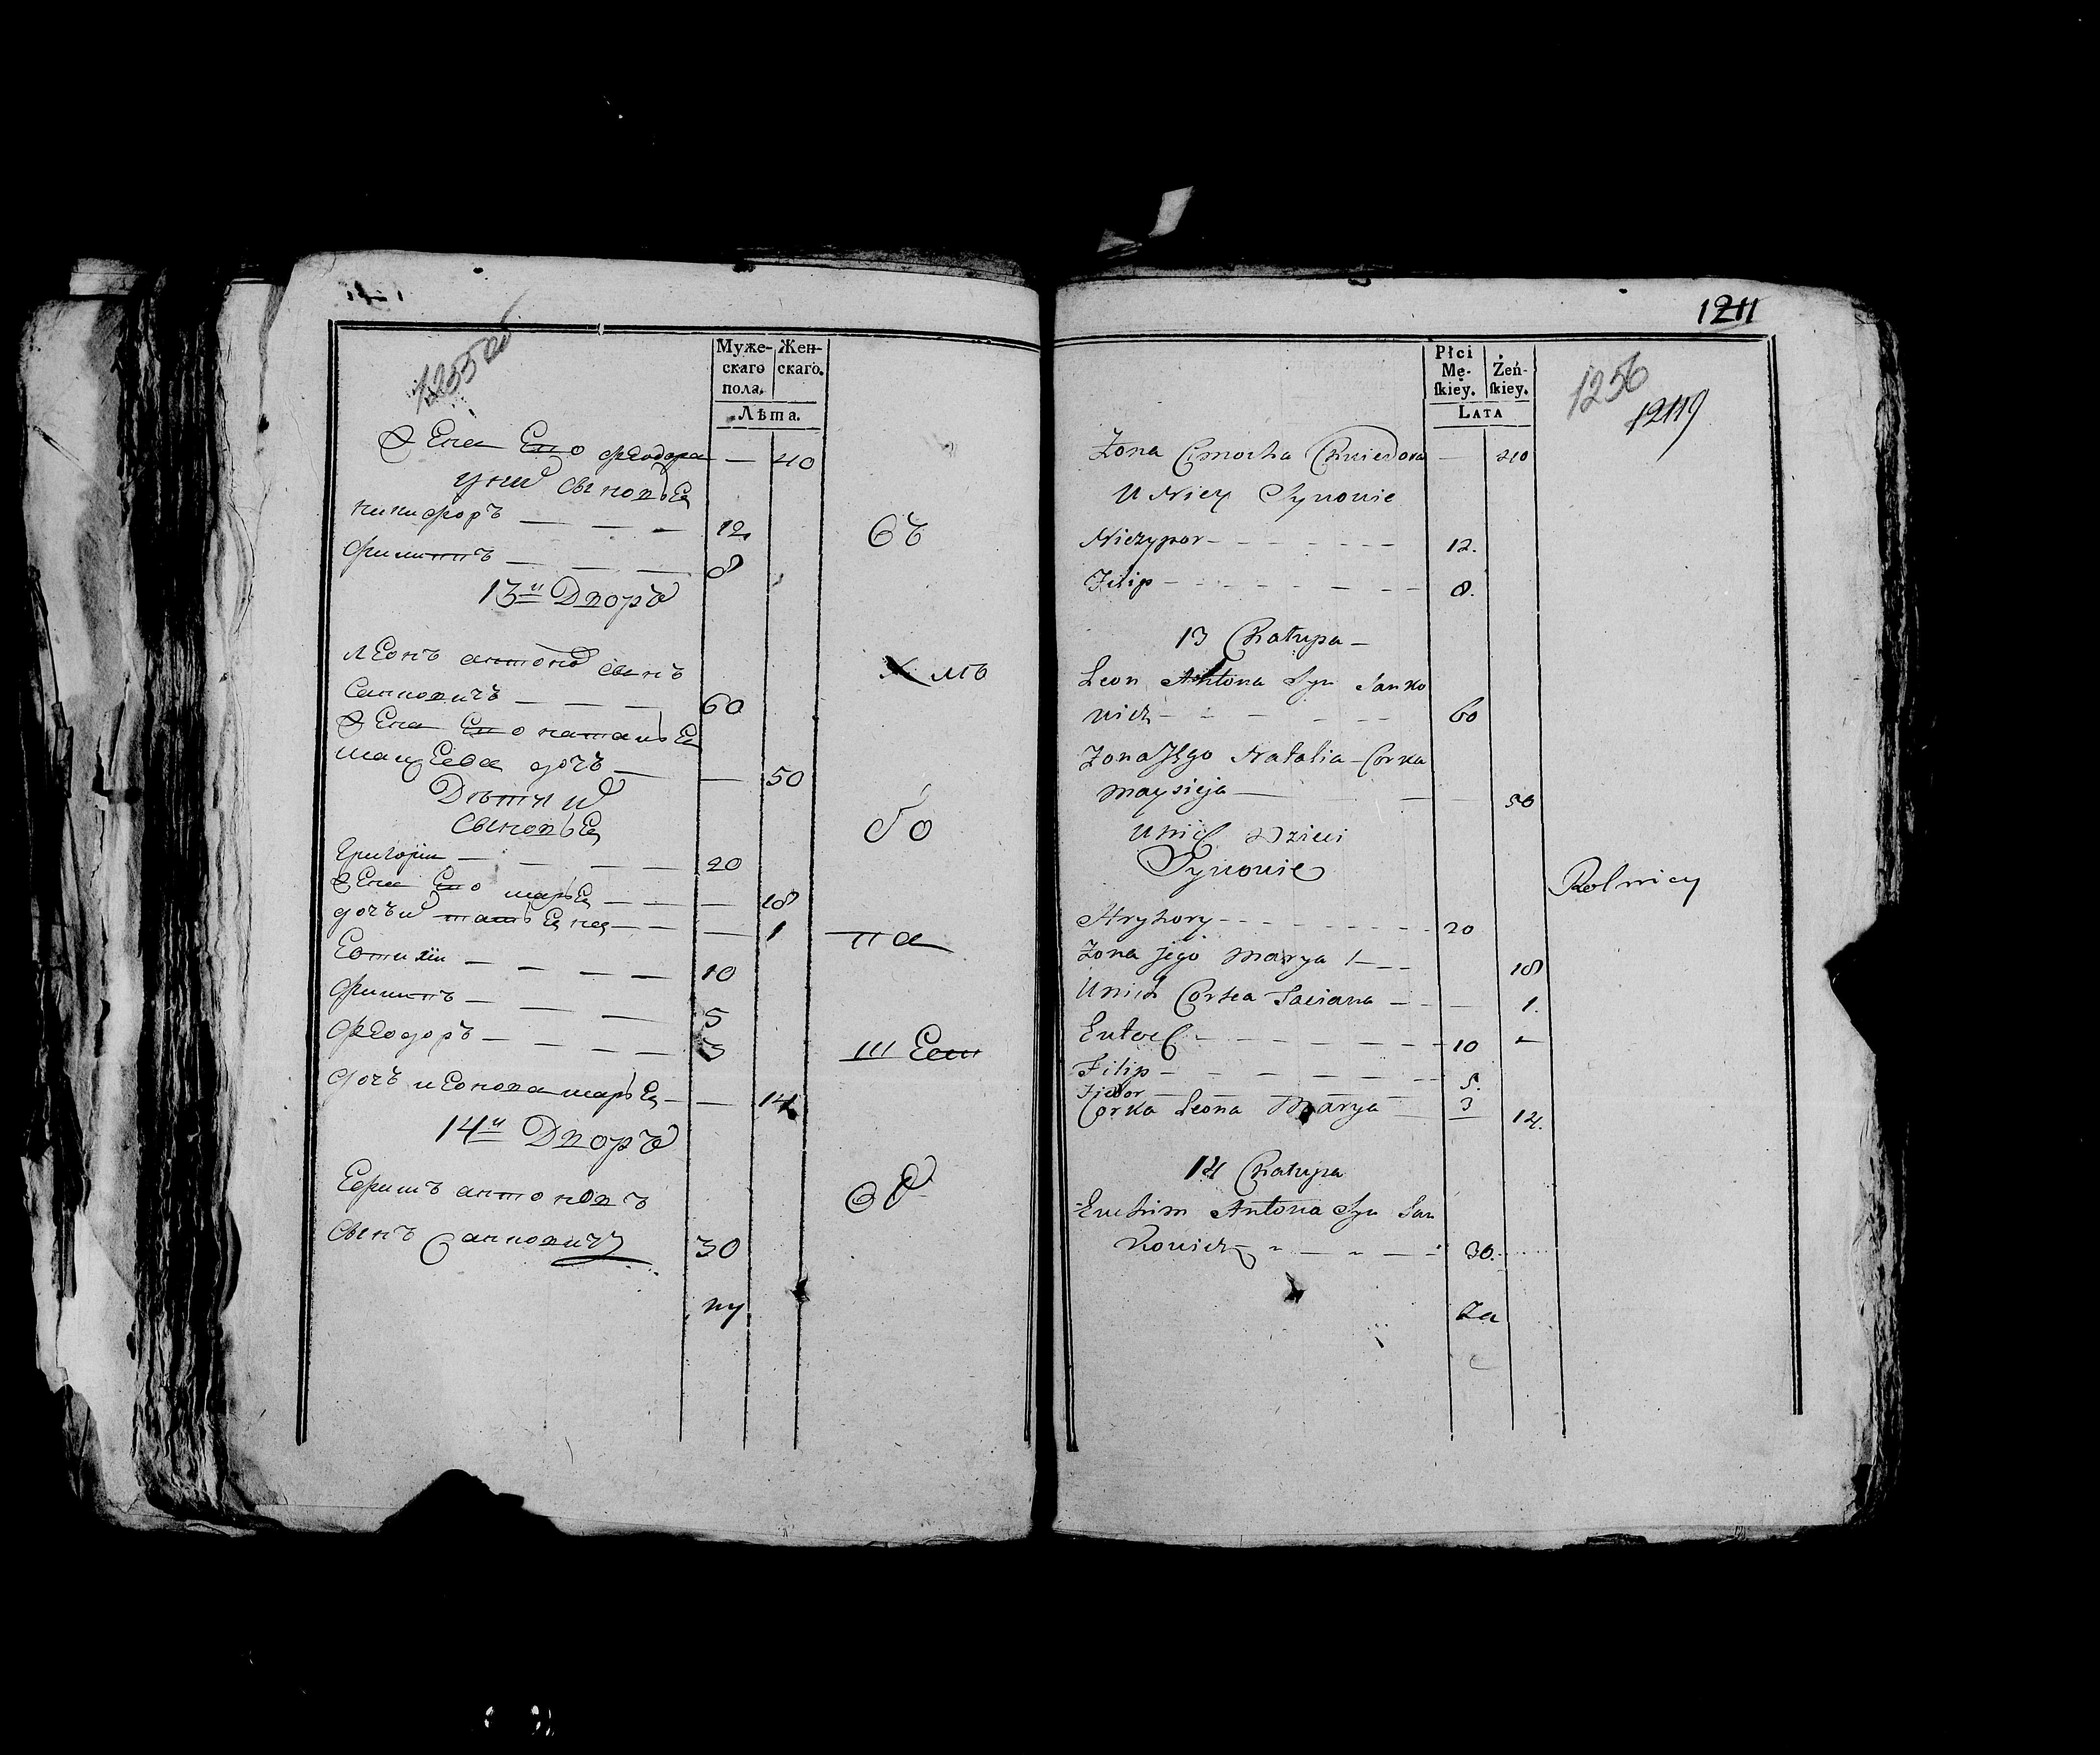 1255 об
Муже-
скаго
пола.
Жен-
скаго.
Лѣта.
Жена Его феодора — 40
у них сыновья
никифоръ — — — 12
филиппъ — — — 8
13й Дворъ
леонъ антонов сынъ
Санковичъ — — — 60
Жена Его наталья
дочъ — — 50
Дѣти их
Сыновья
григорiи — — — — 20
Жена Его марья — — — 18
дочъ их татьяна — — — 1
Евтихiи — — — — 10
филипъ — — — 5
феодоръ — — — — 3
дочъ леонова марья — — 14
14й Дворъ
Ефимъ антоновъ
сынъ Санковичъ 30
съ
хлѣ
бо
па
ше
ства
1211
Płci
Mę-
skiey.
Żeń-
skiey.
LATA
1256
1249
Żona Cimocha Chwiedora — 40
U Niey Synowie
Niczypor — — — 12.
Filip — — — 8.
13 Chałupa —
Leon Antona Syn Sanko
wicz — — — 60
Żona Jego Natalia Corka
— — 50
U nich Dzieci
Synowie
Rolnicy
Hryhory — — — 20
Żona jego Marya — — 18
U nich Corka Taciana — — 1.
— — — 10 —
Filip — — — — 5.
Fiedor — — — 3
Corka Leona Marya — 14.
14 Chałupa
Euchim Antona Syn San
kowicz — — — 30.
Za